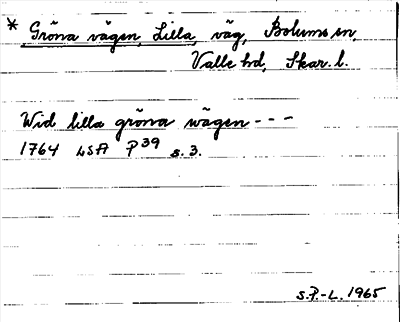 * Gröna vägen, Lilla, väg, Bolums sn,
Valle hd, Skar. l.
Wid lilla gröna wägen - - -
1764 LSA P 39 s. 3.
S.P.-L. 1965